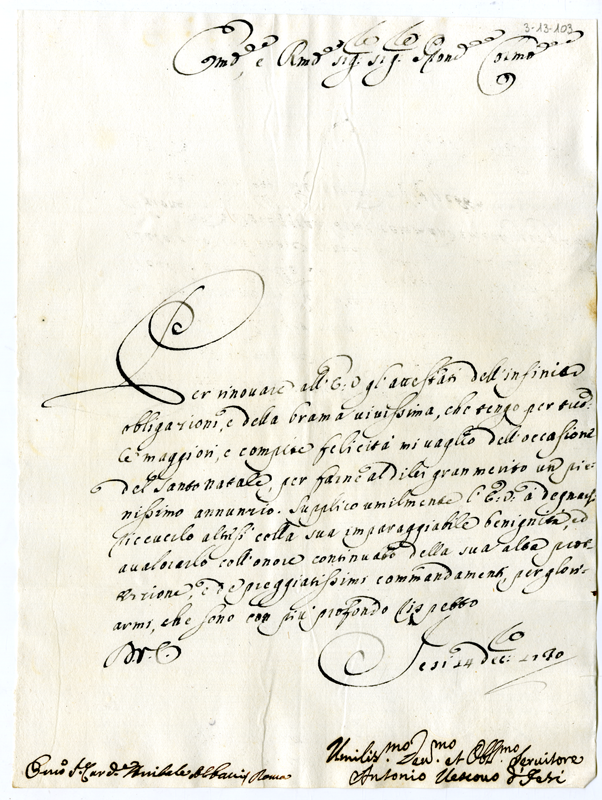 3-13-103
Em.mo e Rmo Sig.r Sig.r Pron Colmo
Per rinovare all'E.V. gl'attestati dell'infinite
obligazioni, e della brama vivissima, che tengo per
le maggiori, e compite felicità mi vaglio dell'occasione
del Santo natale, per farne al di lei gran merito un pie-
nissimo annunzio. Supplico umilmente l'E.V. a degnarsi
riceverlo altresì colla sua impareggiabile benignità, ed
avalorarlo coll'onore continuato della sua alta prot-
tezione, e de preggiatissimi commandamenti, per glori-
armi, che sono con più profondo rispetto
D.V.E.
Jesi 24 dec.
Umiliss.mo Dev.mo et Obl.mo Servitore
Antonio Vescovo d'Jesi
Emo S.r Card.e Annibale Albani Roma